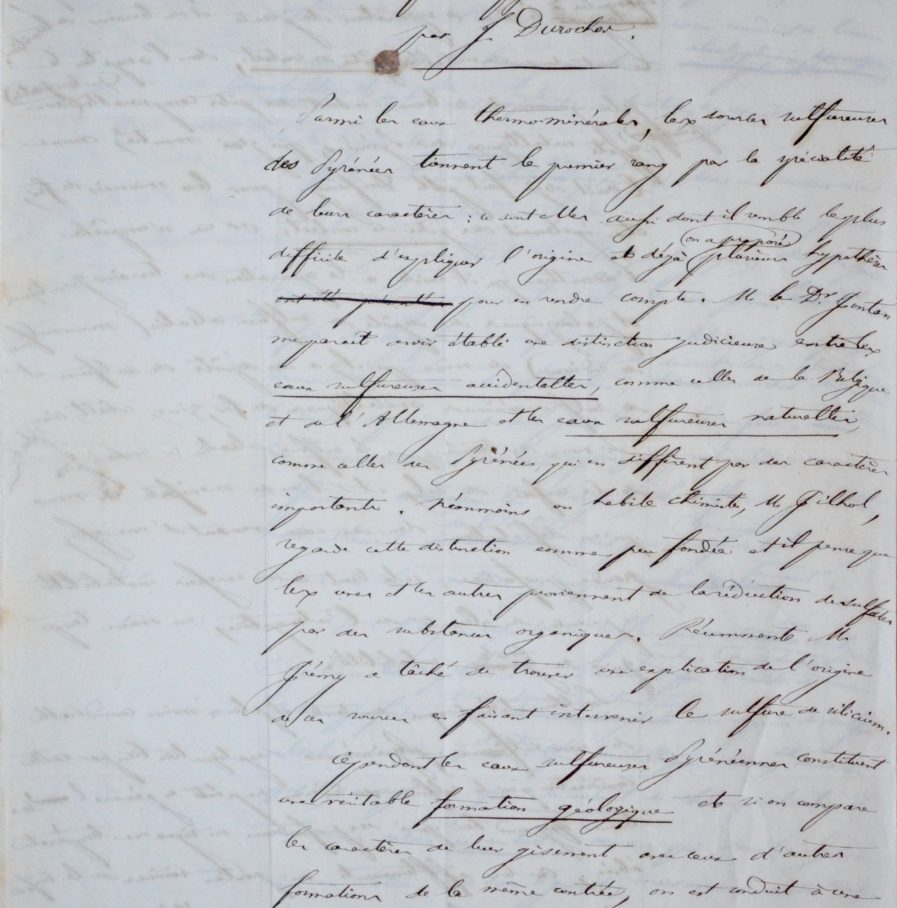 par J Durocher.
Parmi les eaux thermo-minérales, les sources sulfureuses
des Pyrénées tiennent le premier rang par la spécialité
de leurs caractères : ce sont elles aussi dont il semble le plus
on a proposé
difficile d'expliquer l'origine et déjà plusieurs hypothèses
ont été pour en rendre compte. M. le Dr Fontan
me parait avoir établi une distinction judicieuse entre les
eaux sulfureuses accidentelles, comme celles de la Belgique
et de l'Allemagne et les eaux sulfureuses naturelles,
comme celles des Pyrénées, qui en diffèrent par des caractères
importants. Néanmoins un habile chimiste, M. Filhol,
regarde cette distinction comme peu fondée et il pense que
les unes et les autres proviennent de la réduction de sulfates
par des substances organiques. Récemment M.
Frémy a tâché de trouver une explication de l'origine
de ces sources en faisant intervenir le sulfure de silicium.
Cependant les eaux sulfureuses Pyrénéennes constituent
une véritable formation géologique et si on compare
les caractères de leur gisement avec ceux d'autres
formations de la même contrée, on est conduit à une